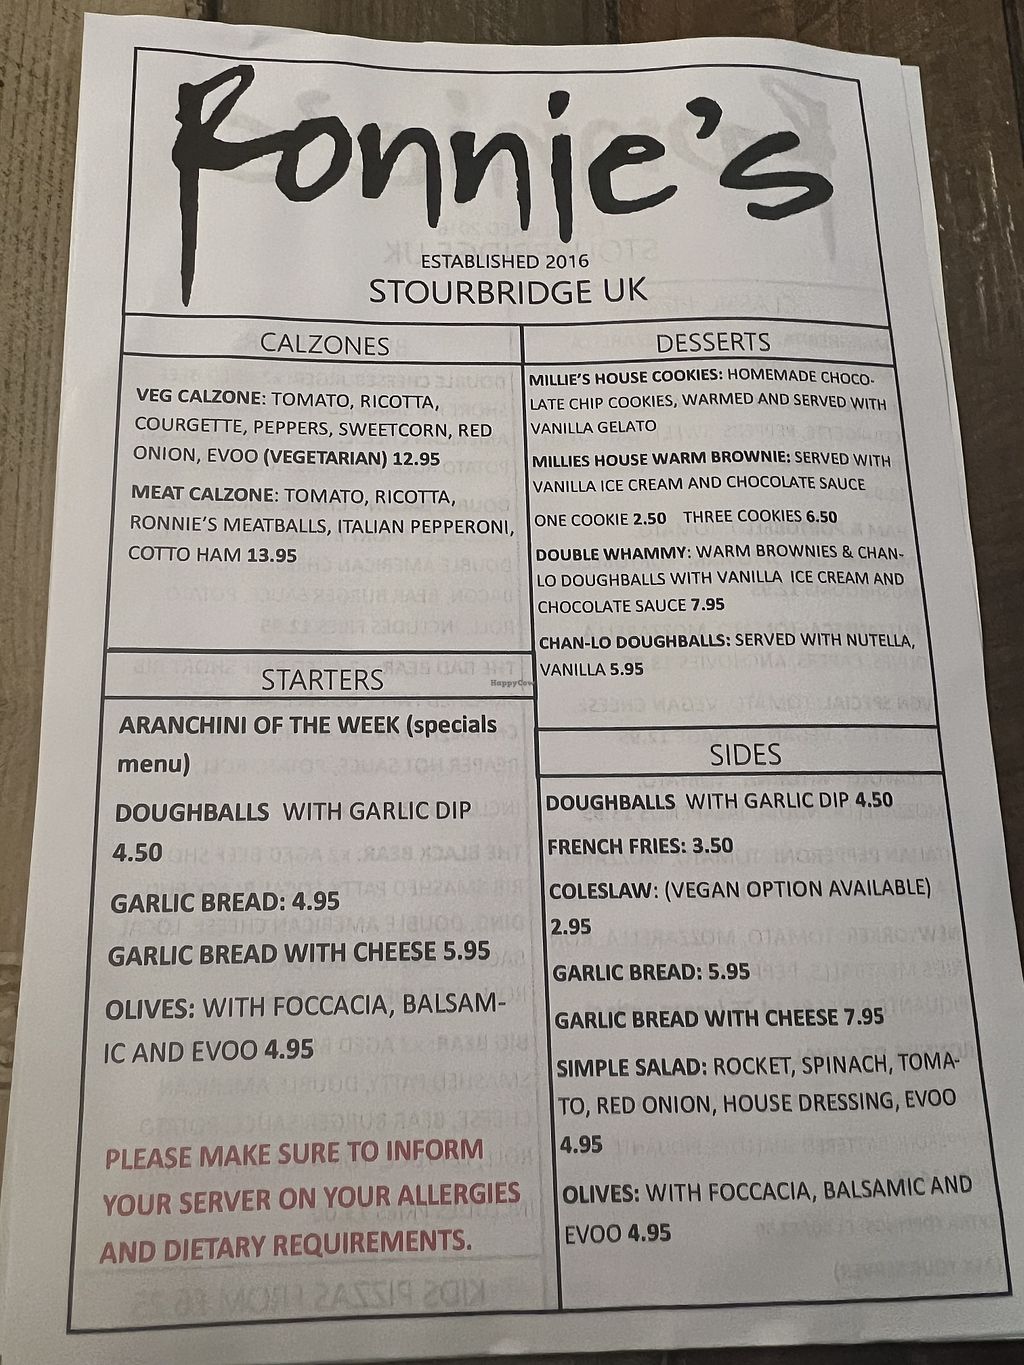 Ronnie's
ESTABLISHED 2016
STOURBRIDGE UK
CALZONES
VEG CALZONE: TOMATO, RICOTTA,
COURGETTE, PEPPERS, SWEETCORN, RED
ONION, EVOO (VEGETARIAN) 12.95
MEAT CALZONE: TOMATO, RICOTTA,
RONNIE'S MEATBALLS, ITALIAN PEPPERONI,
COTTO HAM 13.95
STARTERS
ARANCHINI OF THE WEEK (specials
menu)
DOUGHBALLS WITH GARLIC DIP
4.50
GARLIC BREAD: 4.95
GARLIC BREAD WITH CHEESE 5.95
OLIVES: WITH FOCCACIA, BALSAM-
IC AND EVOO 4.95
PLEASE MAKE SURE TO INFORM
YOUR SERVER ON YOUR ALLERGIES
AND DIETARY REQUIREMENTS.
DESSERTS
MILLIE'S HOUSE COOKIES: HOMEMADE CHOCO-
LATE CHIP COOKIES, WARMED AND SERVED WITH
VANILLA GELATO
MILLIES HOUSE WARM BROWNIE: SERVED WITH
VANILLA ICE CREAM AND CHOCOLATE SAUCE
ONE COOKIE 2.50 THREE COOKIES 6.50
DOUBLE WHAMMY: WARM BROWNIES & CHAN-
LO DOUGHBALLS WITH VANILLA ICE CREAM AND
CHOCOLATE SAUCE 7.95
CHAN-LO DOUGHBALLS: SERVED WITH NUTELLA,
VANILLA 5.95
SIDES
DOUGHBALLS WITH GARLIC DIP 4.50
FRENCH FRIES: 3.50
COLESLAW: (VEGAN OPTION AVAILABLE)
2.95
GARLIC BREAD: 5.95
GARLIC BREAD WITH CHEESE 7.95
SIMPLE SALAD: ROCKET, SPINACH, TOMA-
TO, RED ONION, HOUSE DRESSING, EVOO
4.95
OLIVES: WITH FOCCACIA, BALSAMIC AND
EVOO 4.95
HappyCow